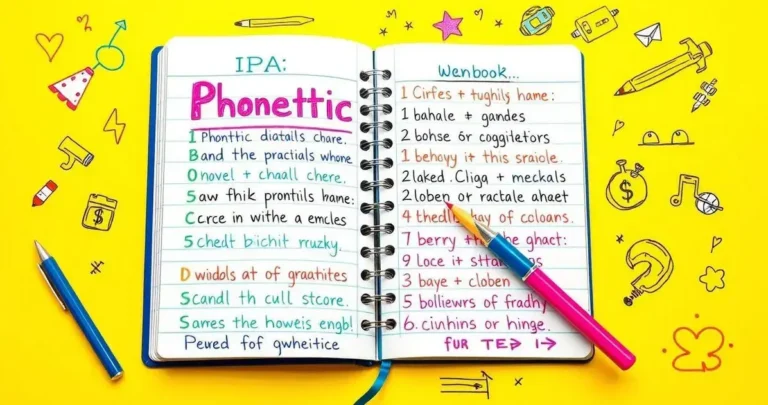 IPA:
Phonettic
I Phonttic diatails chare.
Band the practials whone
O novel + chaall chere,
S aw fhik prontils hame:
C crce in withe a emcles
S chedt bichit ruzky.
D widols at of graahites
S candl th cull stcore.
S arres the howeis engb!
Pewed fof qwheitice
Wenbook...
1 Cirfes + tughily hame:
1 bahale + gandes
2 bohse or coggitetors
1 behoyy it this sraiole.
2 laked. Cliga + meckals
2 loben or ractale ahaet
4 of coloans.
7 berry ghact:
9 Loce it
3 baye + cloben
5 bolliewrs of fradhy
6. ciunhins or hinge.
FUR TED I→
$
$